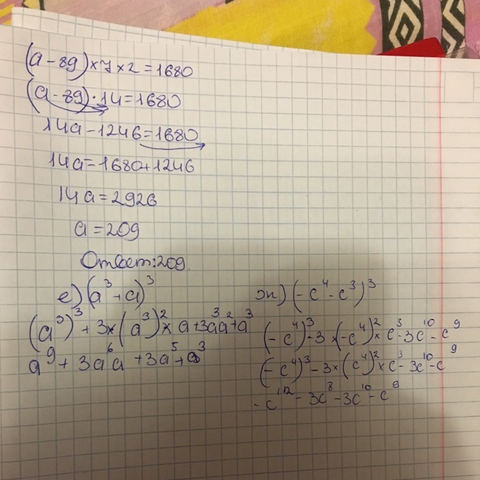 (a-89)×7×2=1680
(a-89)·14=1680
14a-1246=1680
14a=1680+1246
14a=2926
a=209
Ответ:209
е)(a³+a)³
(a³)³+3×(a³)²×a+3aa²+a³
a⁹+3a⁶a+3a⁵+a³
ж)(-c⁴-c³)³
(-c⁴)³-3×(-c⁴)²×c³-3c¹⁰-c⁹
(-c⁴)³-3×(c⁴)²×c³-3c¹⁰-c⁹
-c¹²-3c⁸-3c¹⁰-c⁹